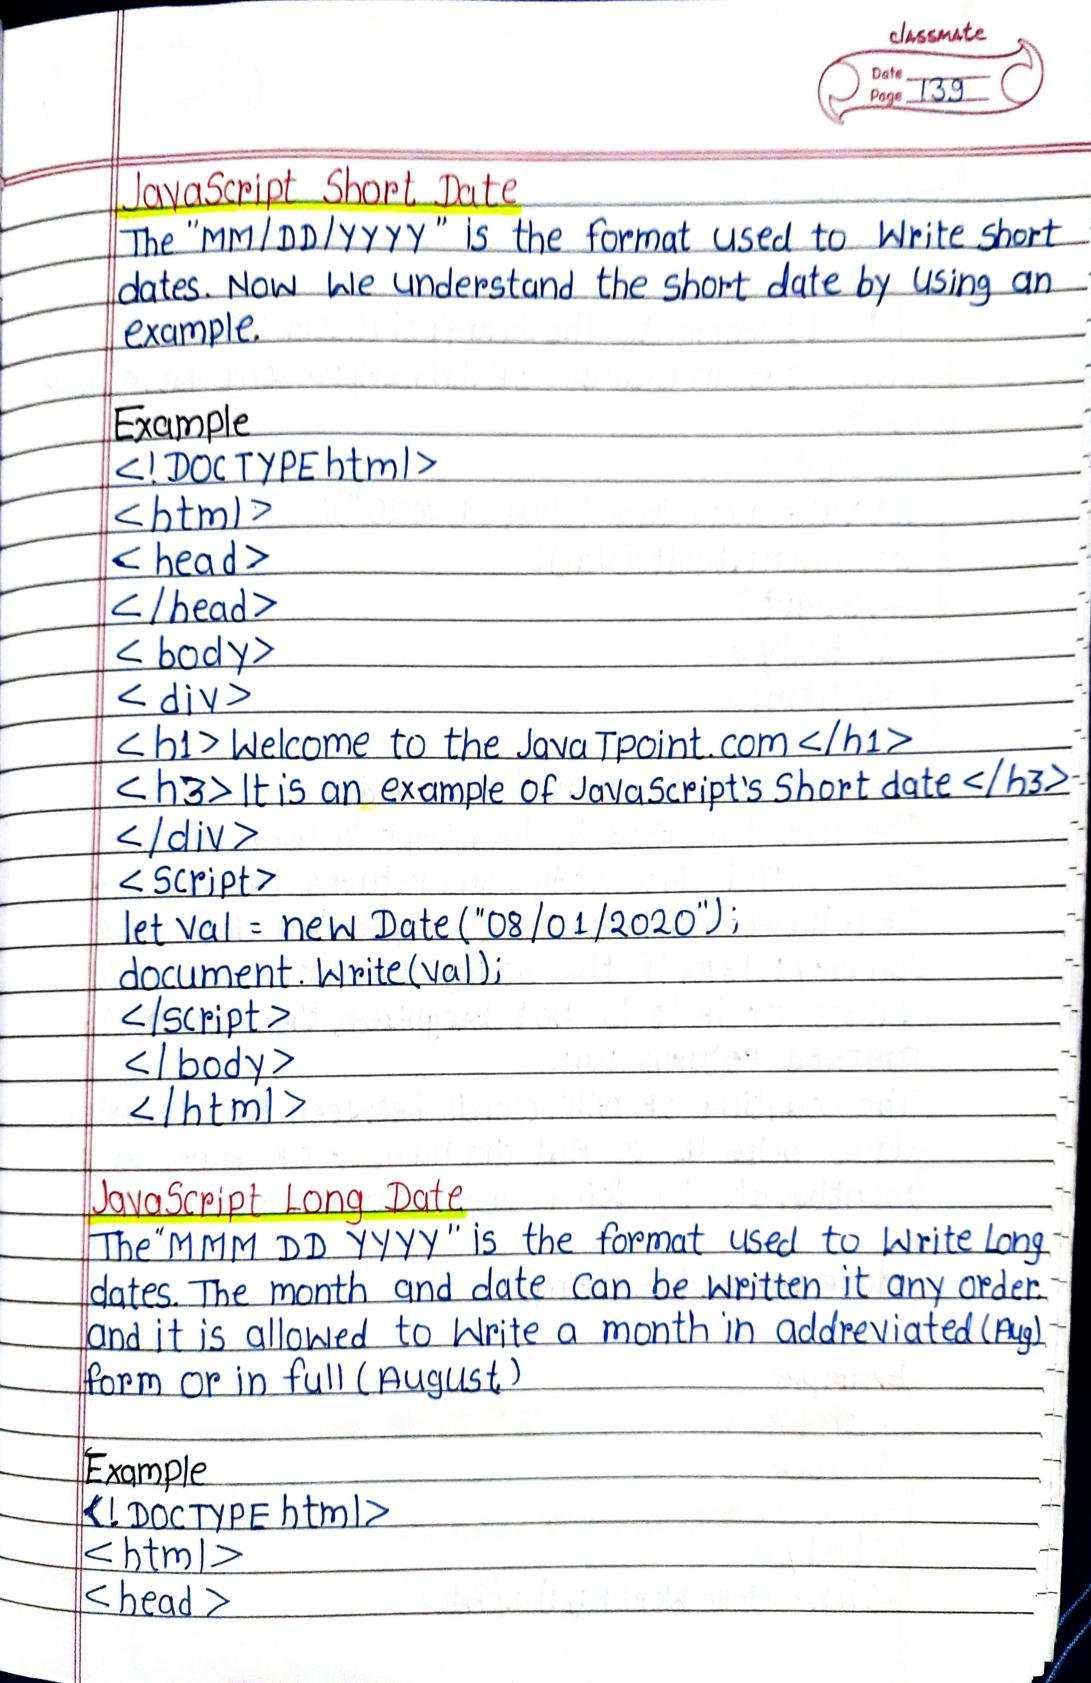 classmate
Date
Page 139
JavaScript Short Date
The "MM/DD/YYYY" is the format used to Write short
dates. Now We understand the short date by Using an
example.
Example
<!DOCTYPE html>
<html>
<head>
</head>
<body>
<div>
<h1>Welcome to the JavaTpoint.com</h1>
<h3>It is an example of JavaScript's Short date </h3>
</div>
<Script>
let val = new Date("08/01/2020");
document.Write(val);
</script>
</body>
</html>
JavaScript Long Date
The "MMM DD YYYY" is the format used to Write Long
dates. The month and date Can be written it any order
and it is allowed to Write a month in addreviated (Aug)
form or in full (August)
Example
<!DOCTYPE html>
<html>
<head>